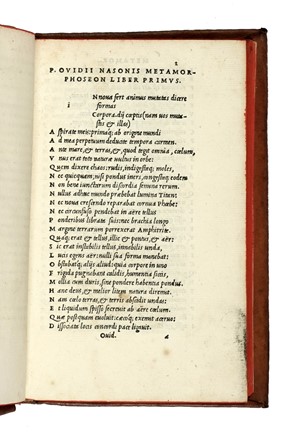 2
P. OVIDII NASONIS METAMOR-
PHOSEON LIBER PRIMUS.
N noua fert animus mutatas dicere
i formas
Corpora. dij cœptis (nam uos muta-
stis et illas)
A spirate meis: primaq; ab origine mundi
A d mea perpetuum deducite tempora carmen.
A nte mare, et terras, et, quod tegit omnia, cœlum,
V nus erat toto naturæ uultus in orbe:
Q uem dixere chaos; rudis, indigestaq; moles,
N ec quicquam; nisi pondus iners, congestaq; eodem
N on bene iunctarum discordia semina rerum.
N ullus adhuc mundo præbebat lumina Titan:
N ec noua crescendo reparabat cornua Phœbe:
N ec circunfuso pendebat in aëre tellus
P onderibus librata suis: nec brachia longo
M argine terrarum porrexerat Amphitrite.
Q uaq; erat et tellus, illic et pontus, et aër:
S ic erat instabilis tellus, innabilis unda,
L ucis egens aër: nulli sua forma manebat:
O bstabatq; alijs aliud: quia corpore in uno
F rigida pugnabant calidis, humentia siccis,
M ollia cum duris, sine pondere habentia pondus.
H anc deus, et melior litem natura diremit.
N am cœlo terras, et terris abscidit undas:
E t liquidum spisso secreuit ab aëre cœlum.
Q uæ postquam euoluit: cæcoq; exemit aceruo:
D issociata locis concordi pace ligauit.
Ouid. a